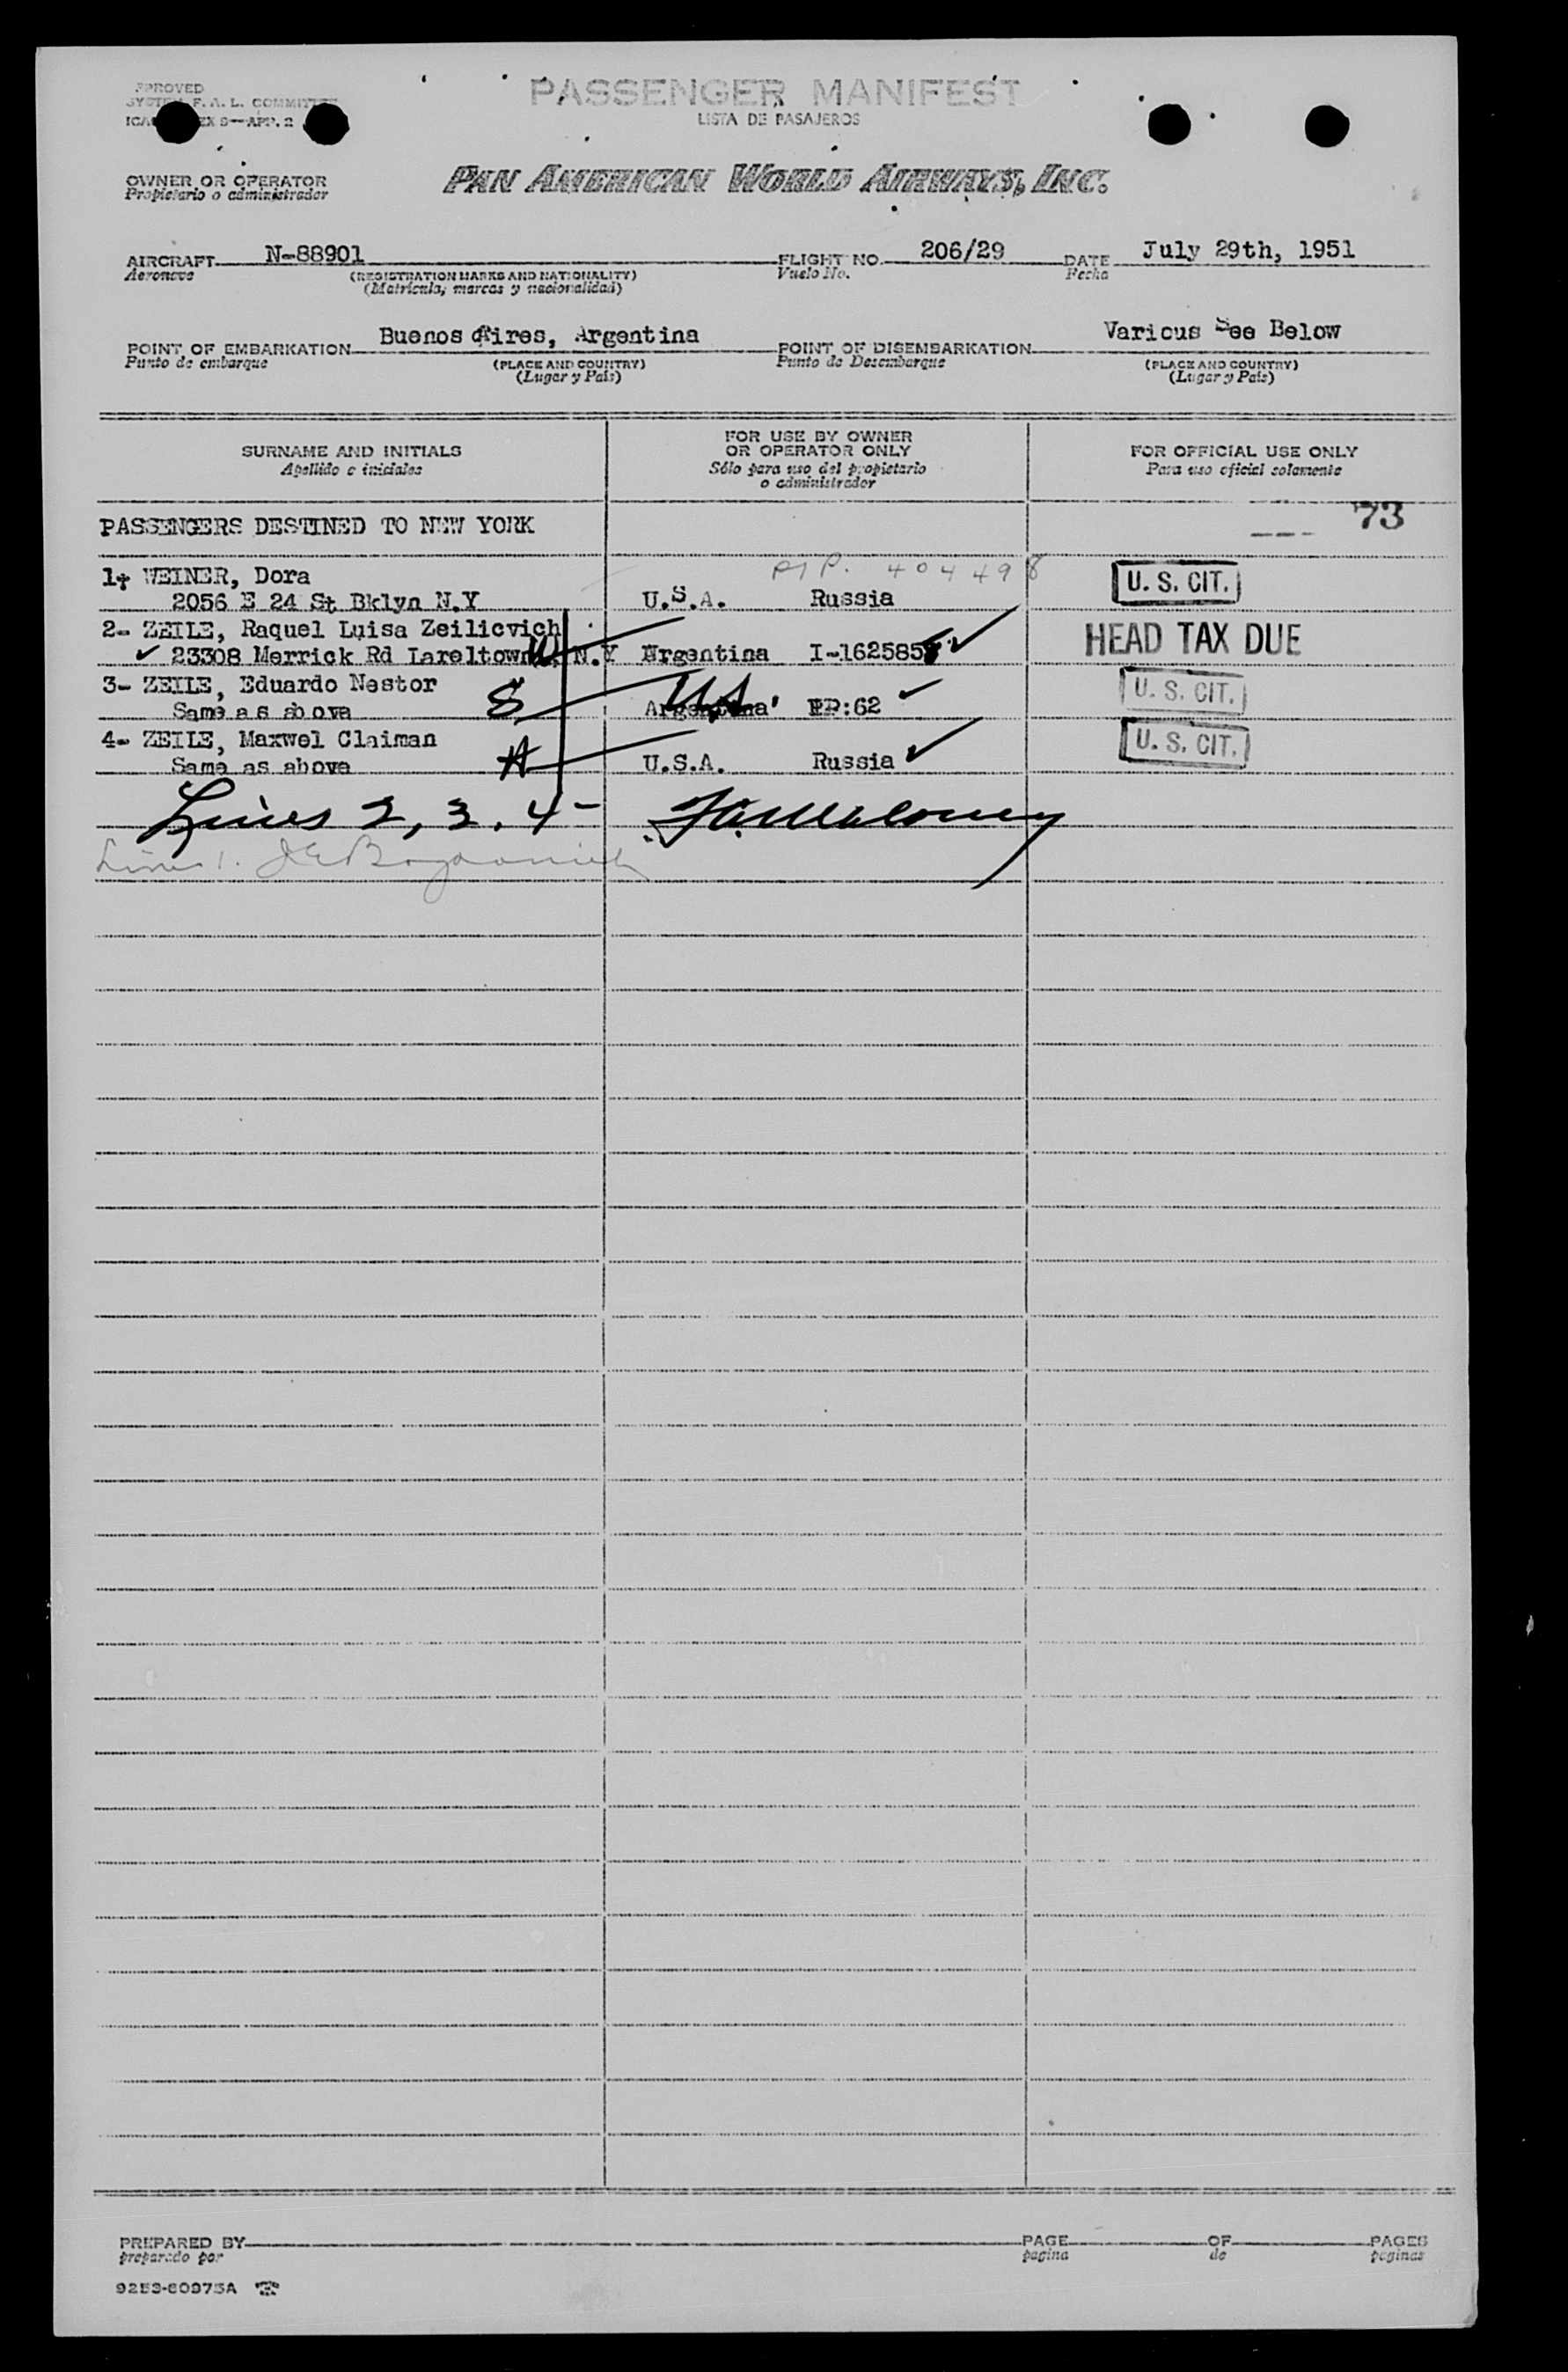 PASSENGER MANIFEST
LISTA DE PASAJEROS
F. A. L.
APP. 2
OWNER OR OPERATOR
Propietario o administrador
PAN AMERICAN WORLD AIRWAYS, INC.
AIRCRAFT N-88901 FLIGHT NO. 206/29 DATE July 29th, 1951
Aeronave (REGISTRATION MARKS AND NATIONALITY) Vuelo No. Fecha
(Matrícula, marcas y nacionalidad)
POINT OF EMBARKATION Buenos Aires, Argentina POINT OF DISEMBARKATION Various See Below
Punto de embarque (PLACE AND COUNTRY) Punto de Desembarque (PLACE AND COUNTRY)
(Lugar y País) (Lugar y País)
SURNAME AND INITIALS
Apellido e iniciales
FOR USE BY OWNER
OR OPERATOR ONLY
Sólo para uso del propietario
o administrador
FOR OFFICIAL USE ONLY
Para uso oficial solamente
PASSENGERS DESTINED TO NEW YORK 73
1- WEINER, Dora 404498 U. S. CIT.
2056 E 24 St Bklyn N.Y U.S.A. Russia
2- ZEILE, Raquel Luisa Zeilicvich HEAD TAX DUE
23308 Merrick Rd Lareltown N.Y Argentina I-1625858
3- ZEILE, Eduardo Nestor U. S. CIT.
Same as above S Argentina PP:62
4- ZEILE, Maxwel Claiman U. S. CIT.
Same as above H U.S.A. Russia
Lines 2, 3, 4-
Line 1.
PREPARED BY PAGE OF PAGES
preparado por pagina de paginas